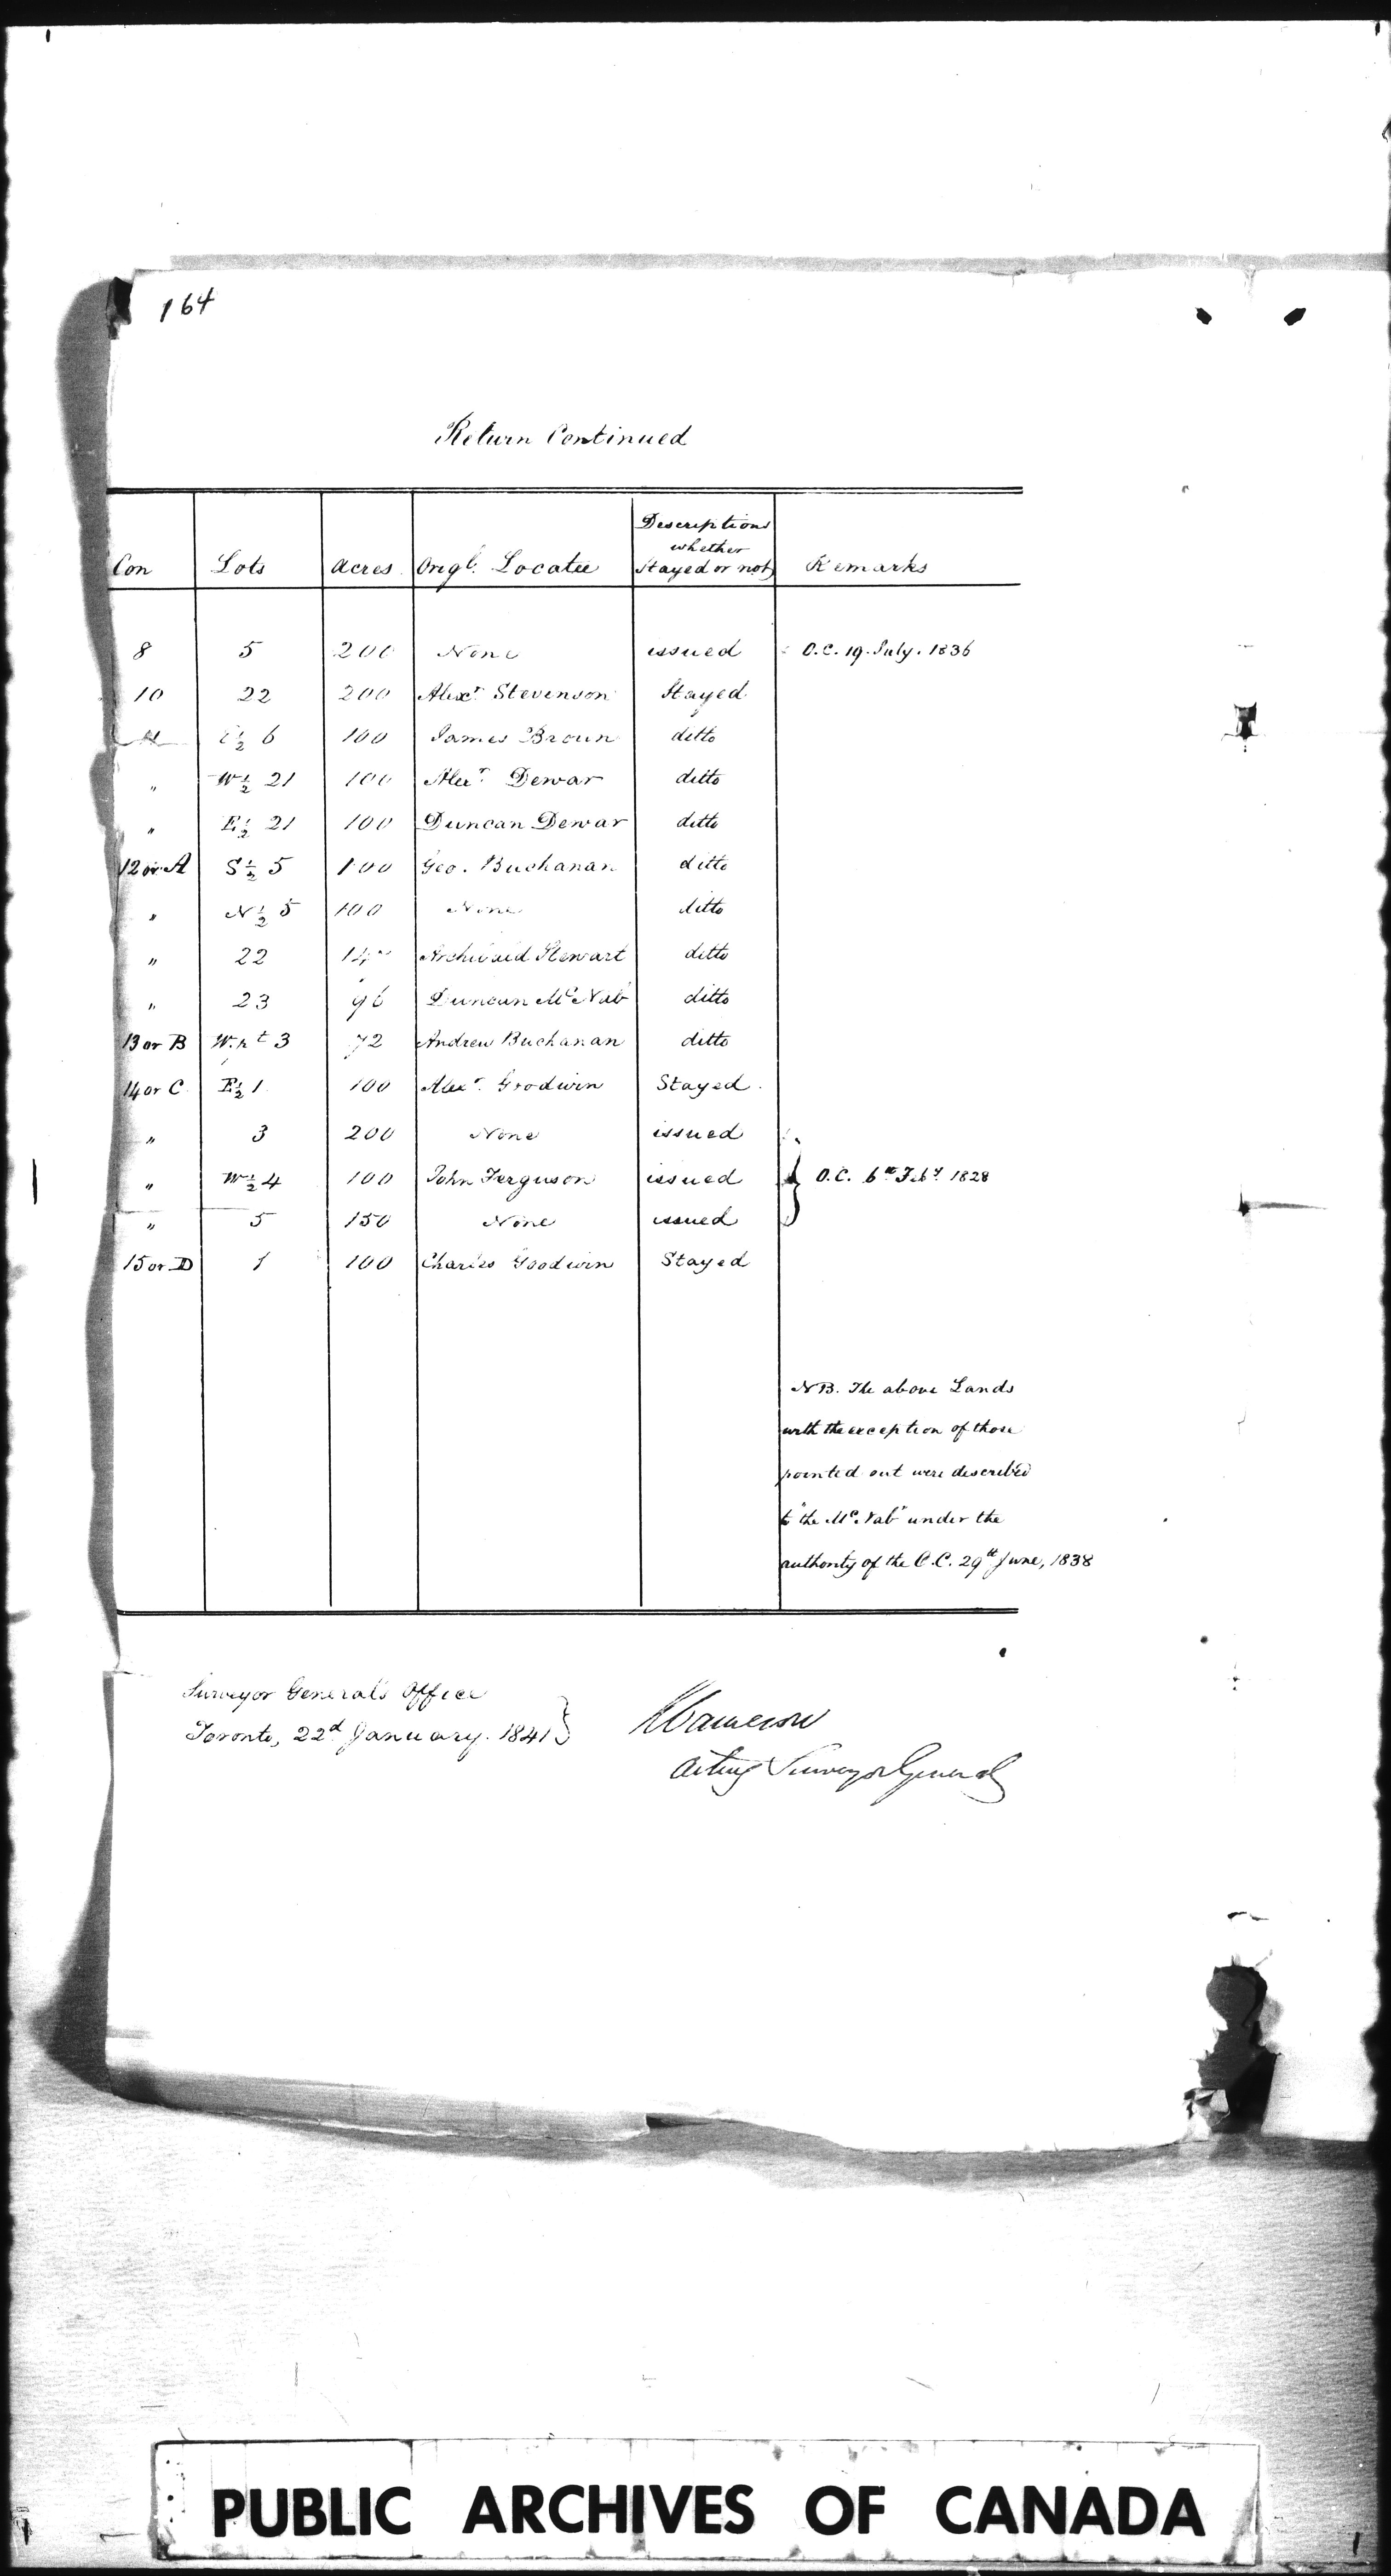 164
Return Continued
Con Lots acres Origl. Locatee Descriptions whether Stayed or not Remarks
8 5 200 None issued O.C. 19. July. 1836
10 22 200 Alexr. Stevenson Stayed
E½ 6 100 James Broun ditto
" W½ 21 100 Alexr. Dewar ditto
" E½ 21 100 Duncan Dewar ditto
12 or A S½ 5 100 Geo. Buchanan ditto
" N½ 5 100 None ditto
" 22 Archibald Stewart ditto
" 23 96 Duncan McNab ditto
13 or B W. pt 3 72 Andrew Buchanan ditto
14 or C E½ 1 100 Alexr. Goodwin Stayed.
" 3 200 None issued
" W½ 4 100 John Ferguson issued } O.C. 6th Feby. 1828
" 5 150 None issued
15 or D 1 100 Charles Goodwin Stayed
NB. The above Lands
with the exception of those
pointed out were described
to "the McNab" under the
authority of the O.C. 29th June, 1838
Surveyor Generals Office
Toronto, 22d January. 1841 }
Cameron
Acting Surveyor General
PUBLIC ARCHIVES OF CANADA